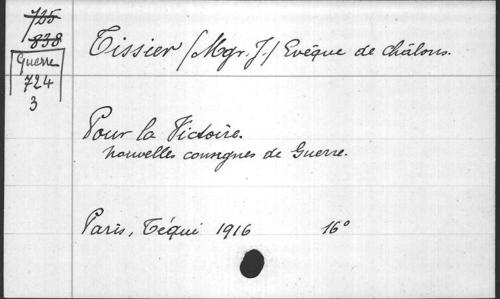 735
838
Guerre
724
3
Tissier (Mgr. J.) Evêque de Châlons.
Pour la Victoire.
nouvelles consignes de Guerre.
Paris, Téqui 1916 16°